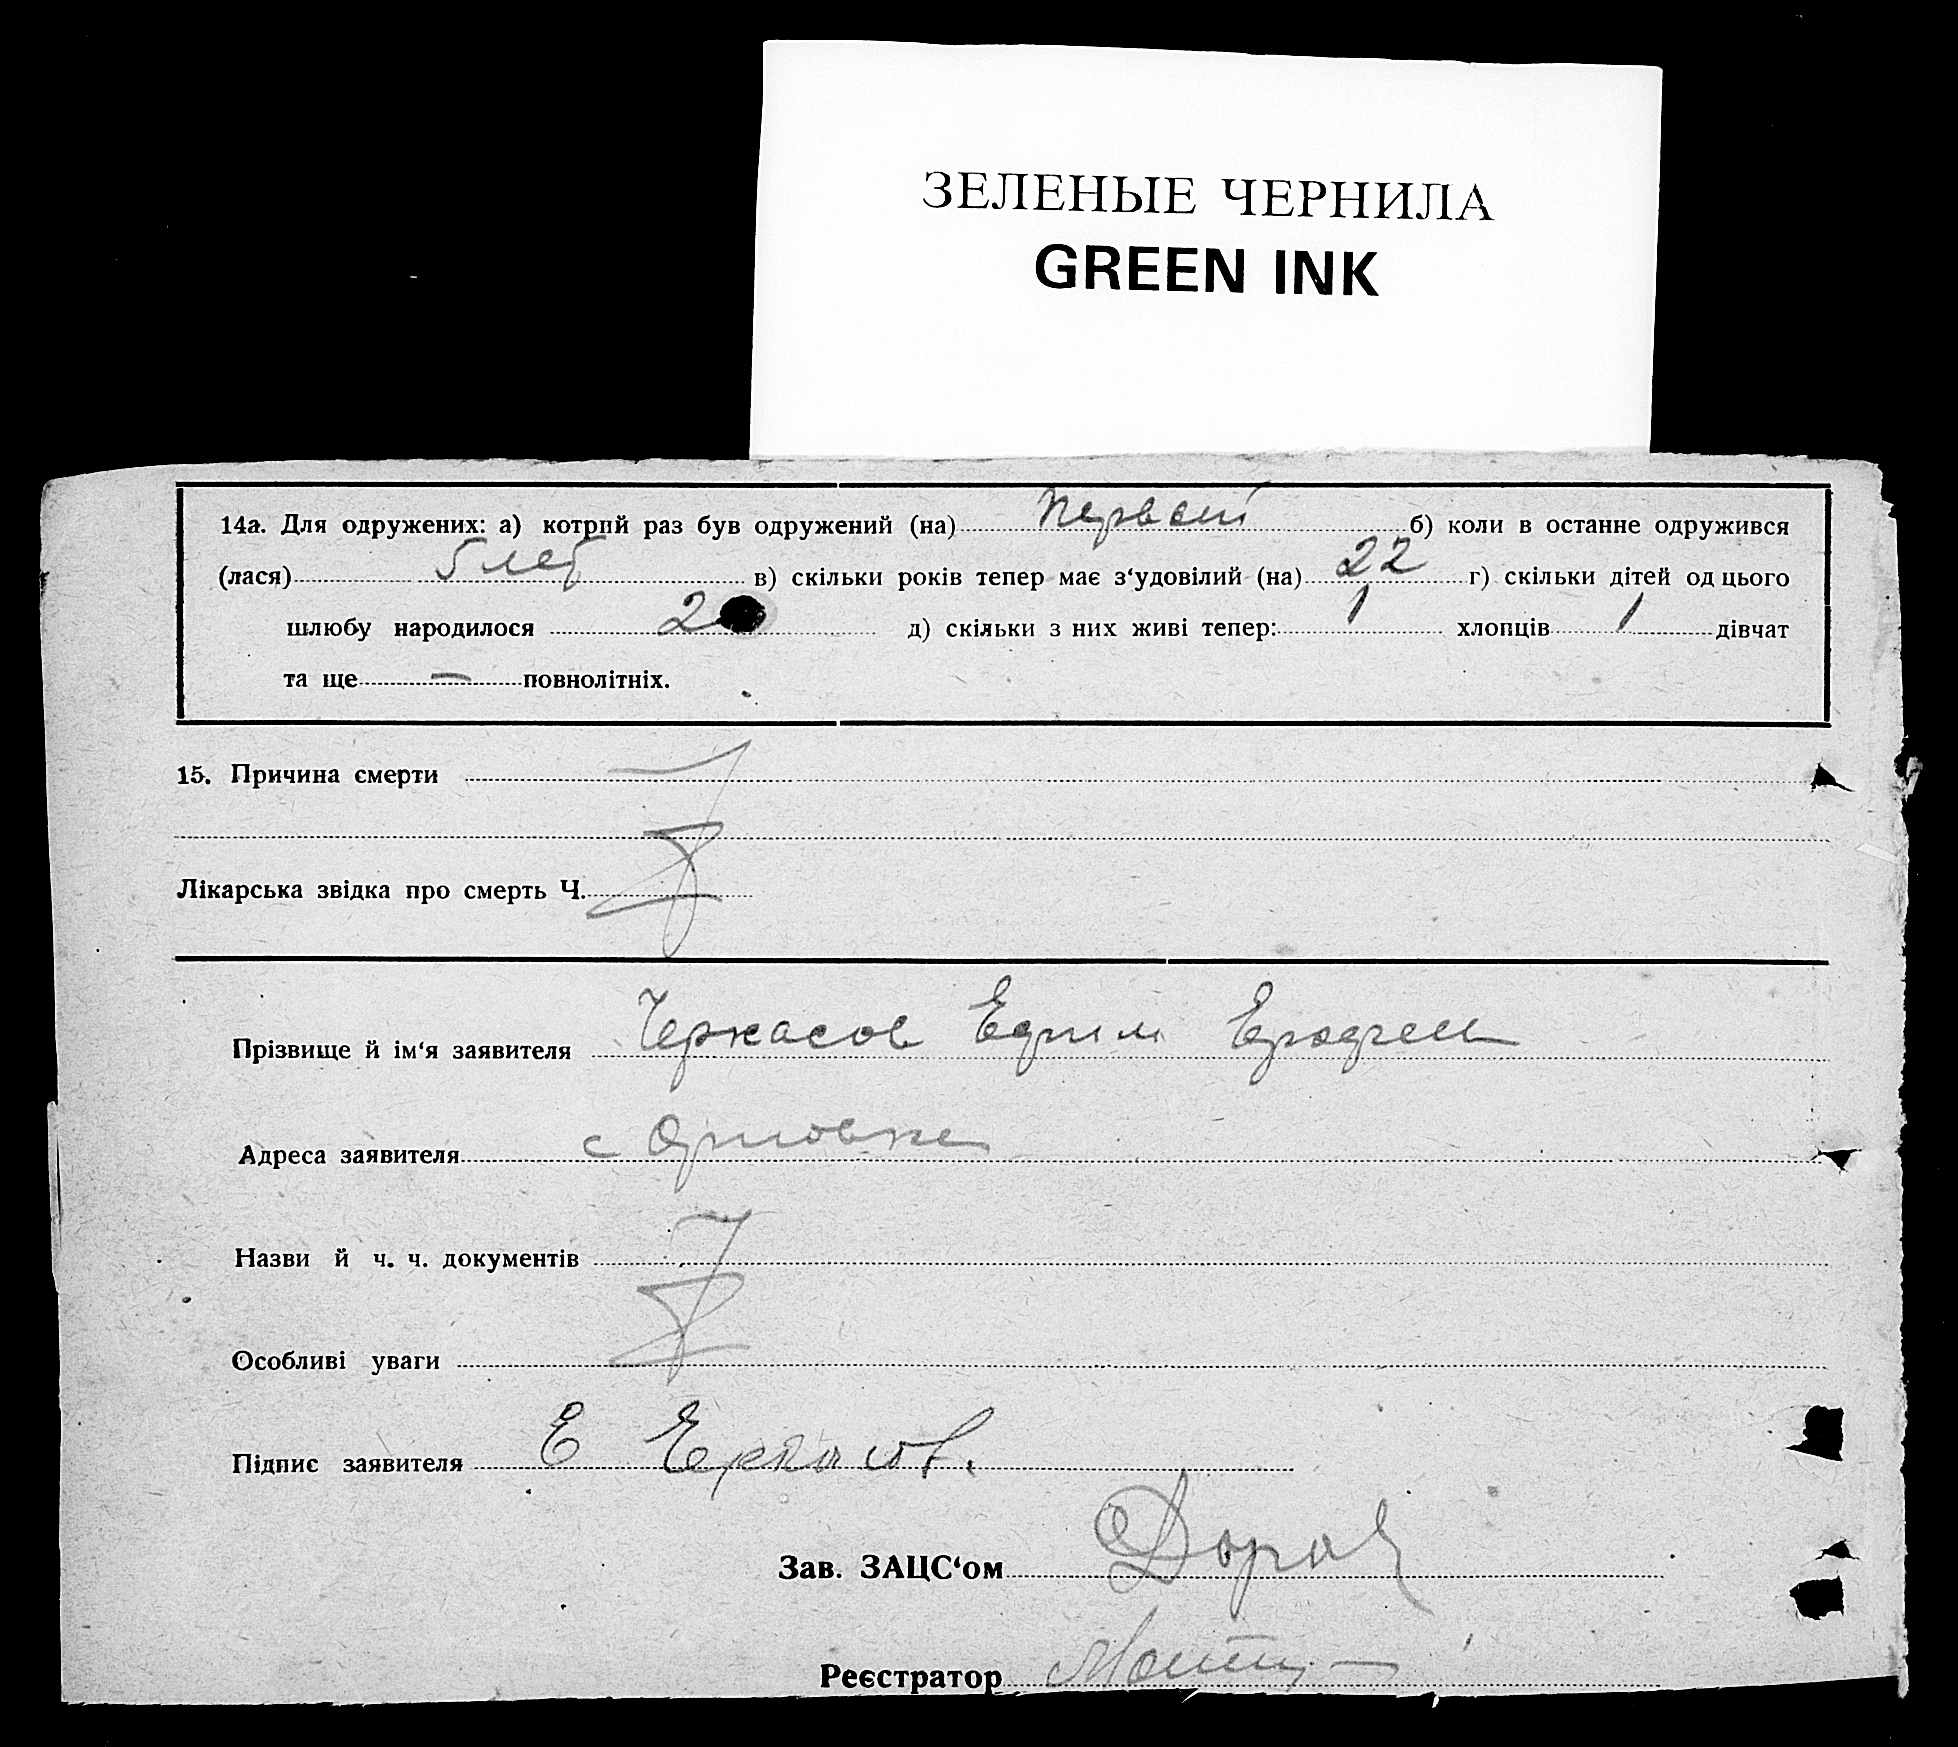 ЗЕЛЕНЫЕ ЧЕРНИЛА
GREEN INK
14а. Для одружених: а) котрий раз був одружений (на) первый б) коли в останне одружився
(лася) 5 лет в) скільки років тепер має з‘удовілий (на) 22 г) скільки дітей од цього
шлюбу народилося 2 д) скільки з них живі тепер: 1 хлопців 1 дівчат
та ще — повнолітніх.
15. Причина смерти
Лікарська звідка про смерть Ч.
Прізвище й ім‘я заявителя Черкасов Ефим
Адреса заявителя с
Назви й ч. ч. документів
Особливі уваги
Підпис заявителя Е Черкасов.
Зав. ЗАЦС‘ом
Реєстратор